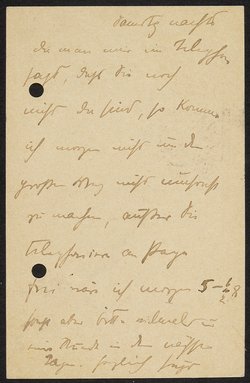 da man mir im Telephon
sagt, daß Sie noch
nicht da sind, so komme
ich morgen nicht um den
großen Weg nicht umsonst
zu machen, außer Sie
telephonieren an
frei wäre ich morgen 5-½8
sonst aber bitte
eine Stunde in den nächsten
Tagen. herzlich